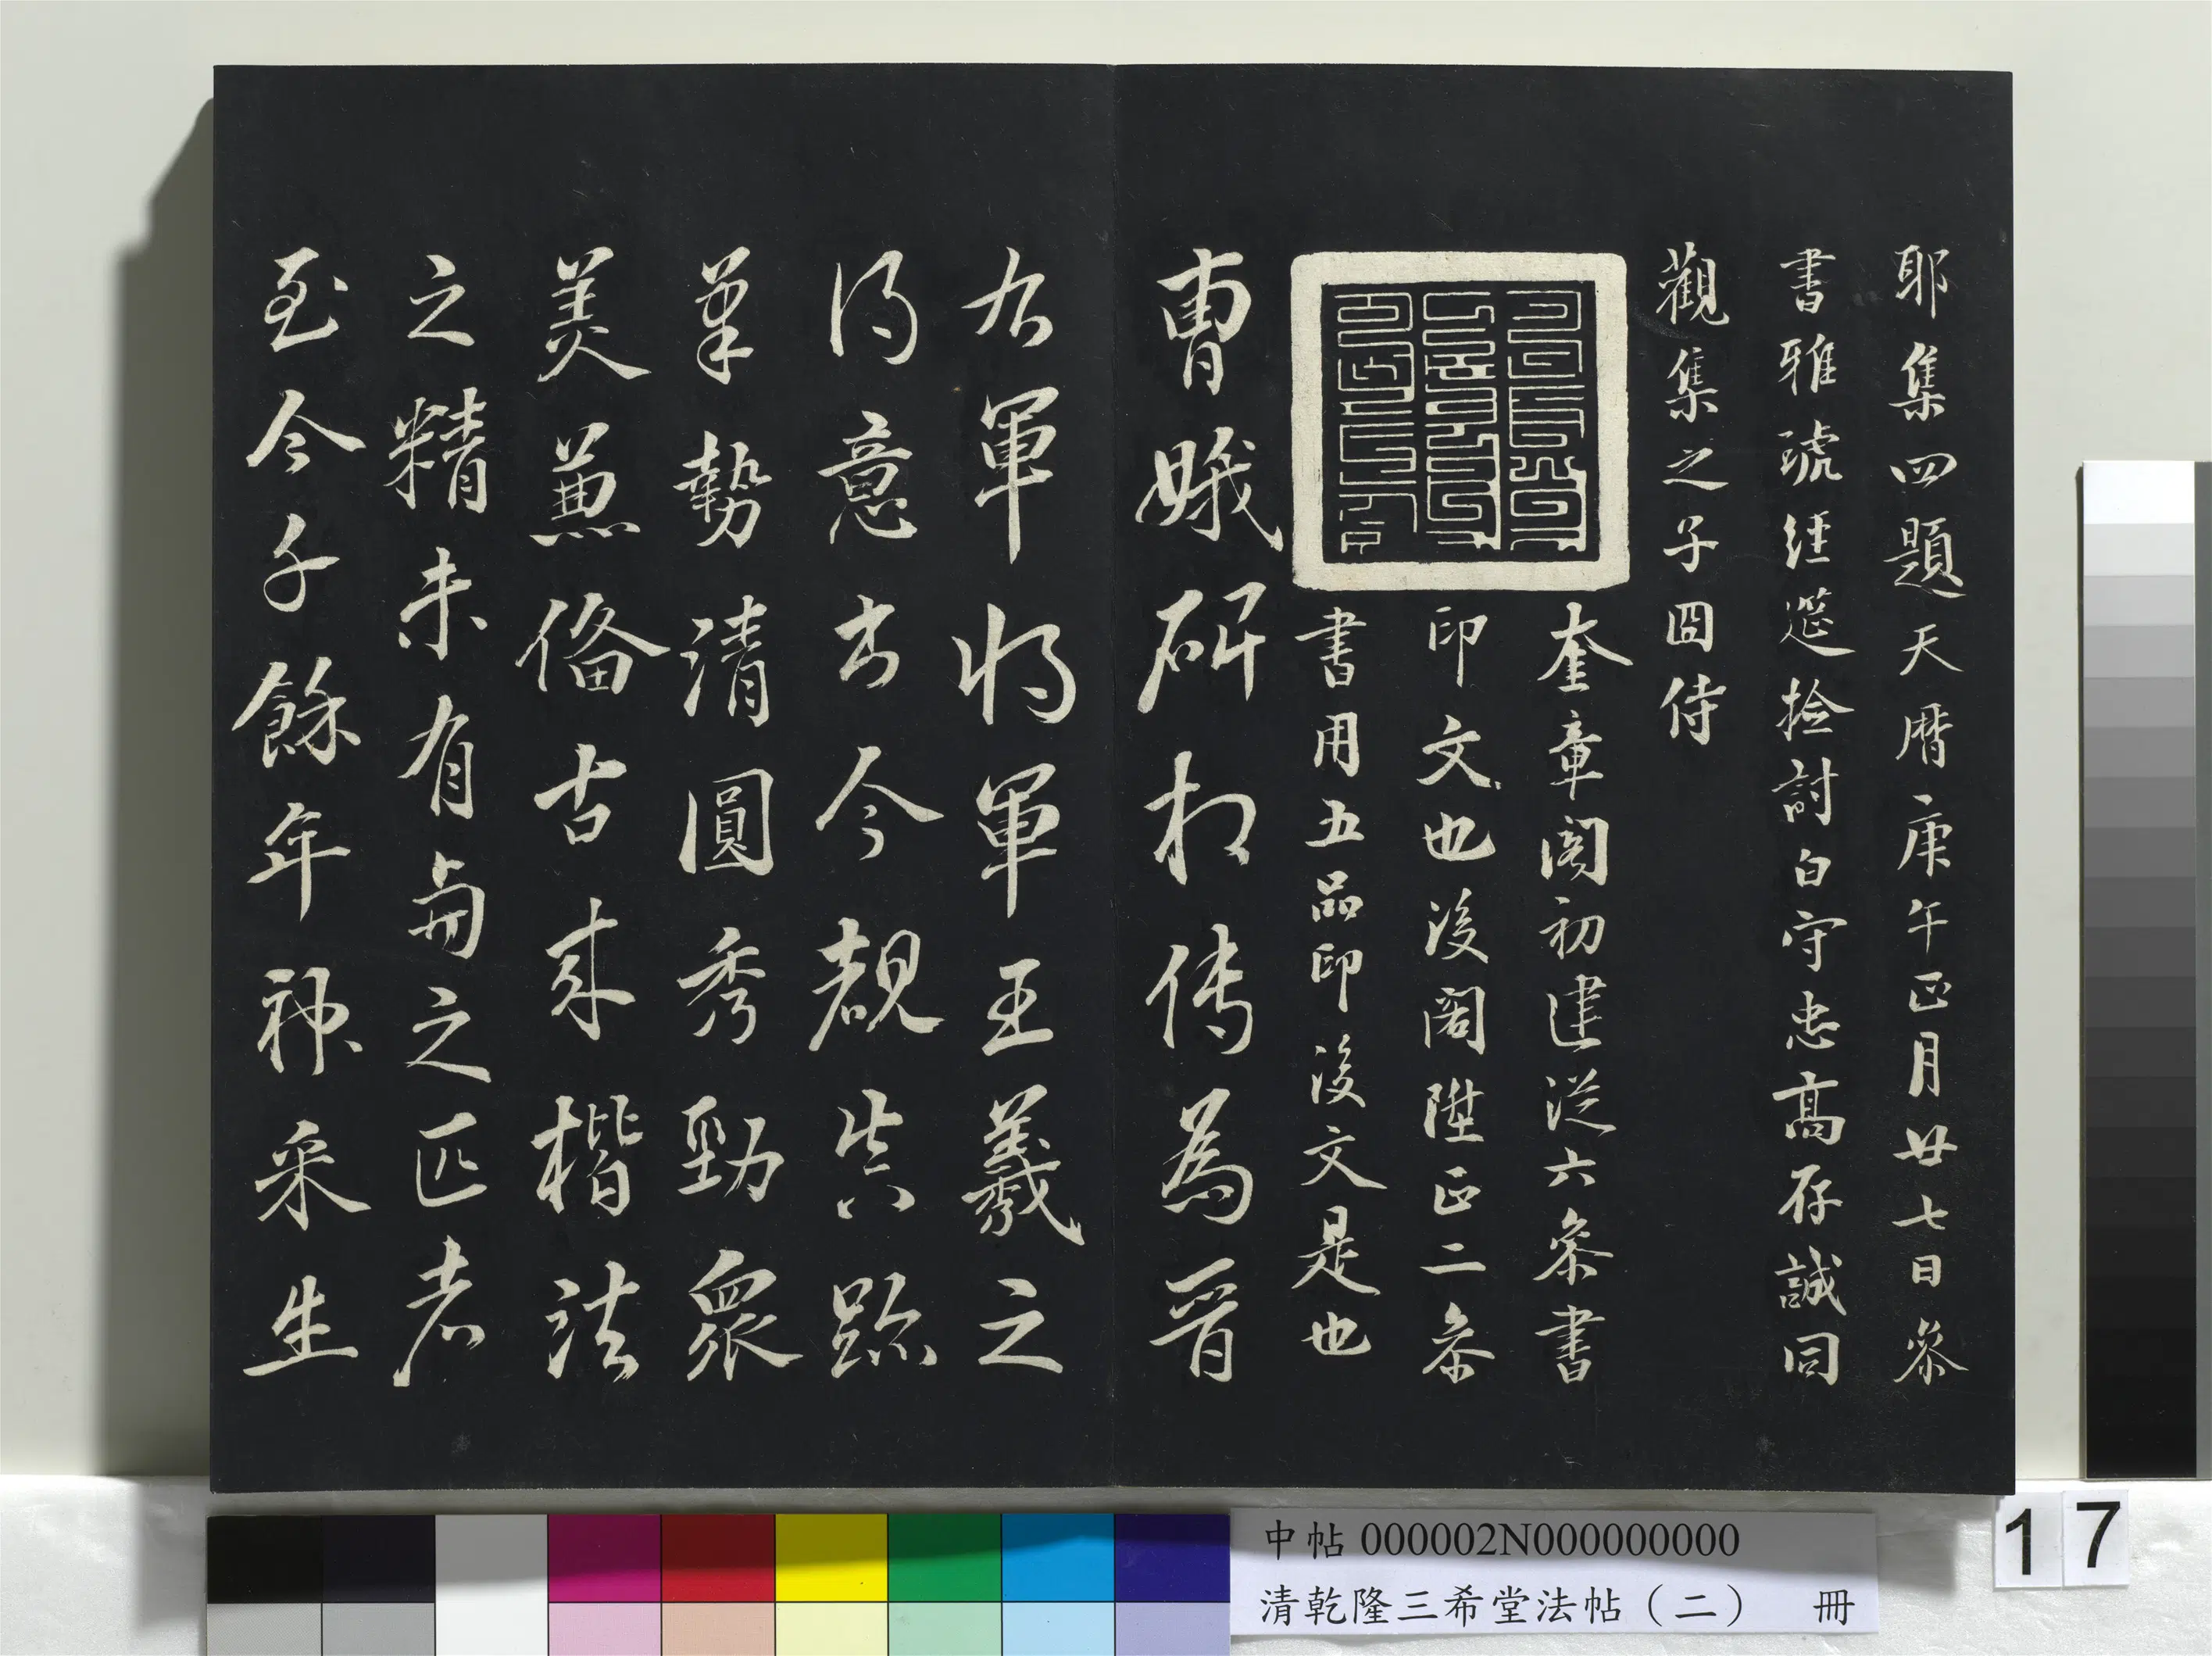 耶集四題天曆庚午正月廿七日叅
書雅琥經筵檢討白守忠高存誠同
觀集之子囧侍
奎章閣初建從六叅書
印文也後閣陞正二叅
書用五品印後文是也
曹娥碑相傳為晉
右軍將軍王羲之
得意書今覩真跡
筆勢清圓秀勁眾
美兼備古來楷法
之精未有與之匹者
至今千餘年神采生
中帖 000002N000000000
清乾隆三希堂法帖（二） 冊
17